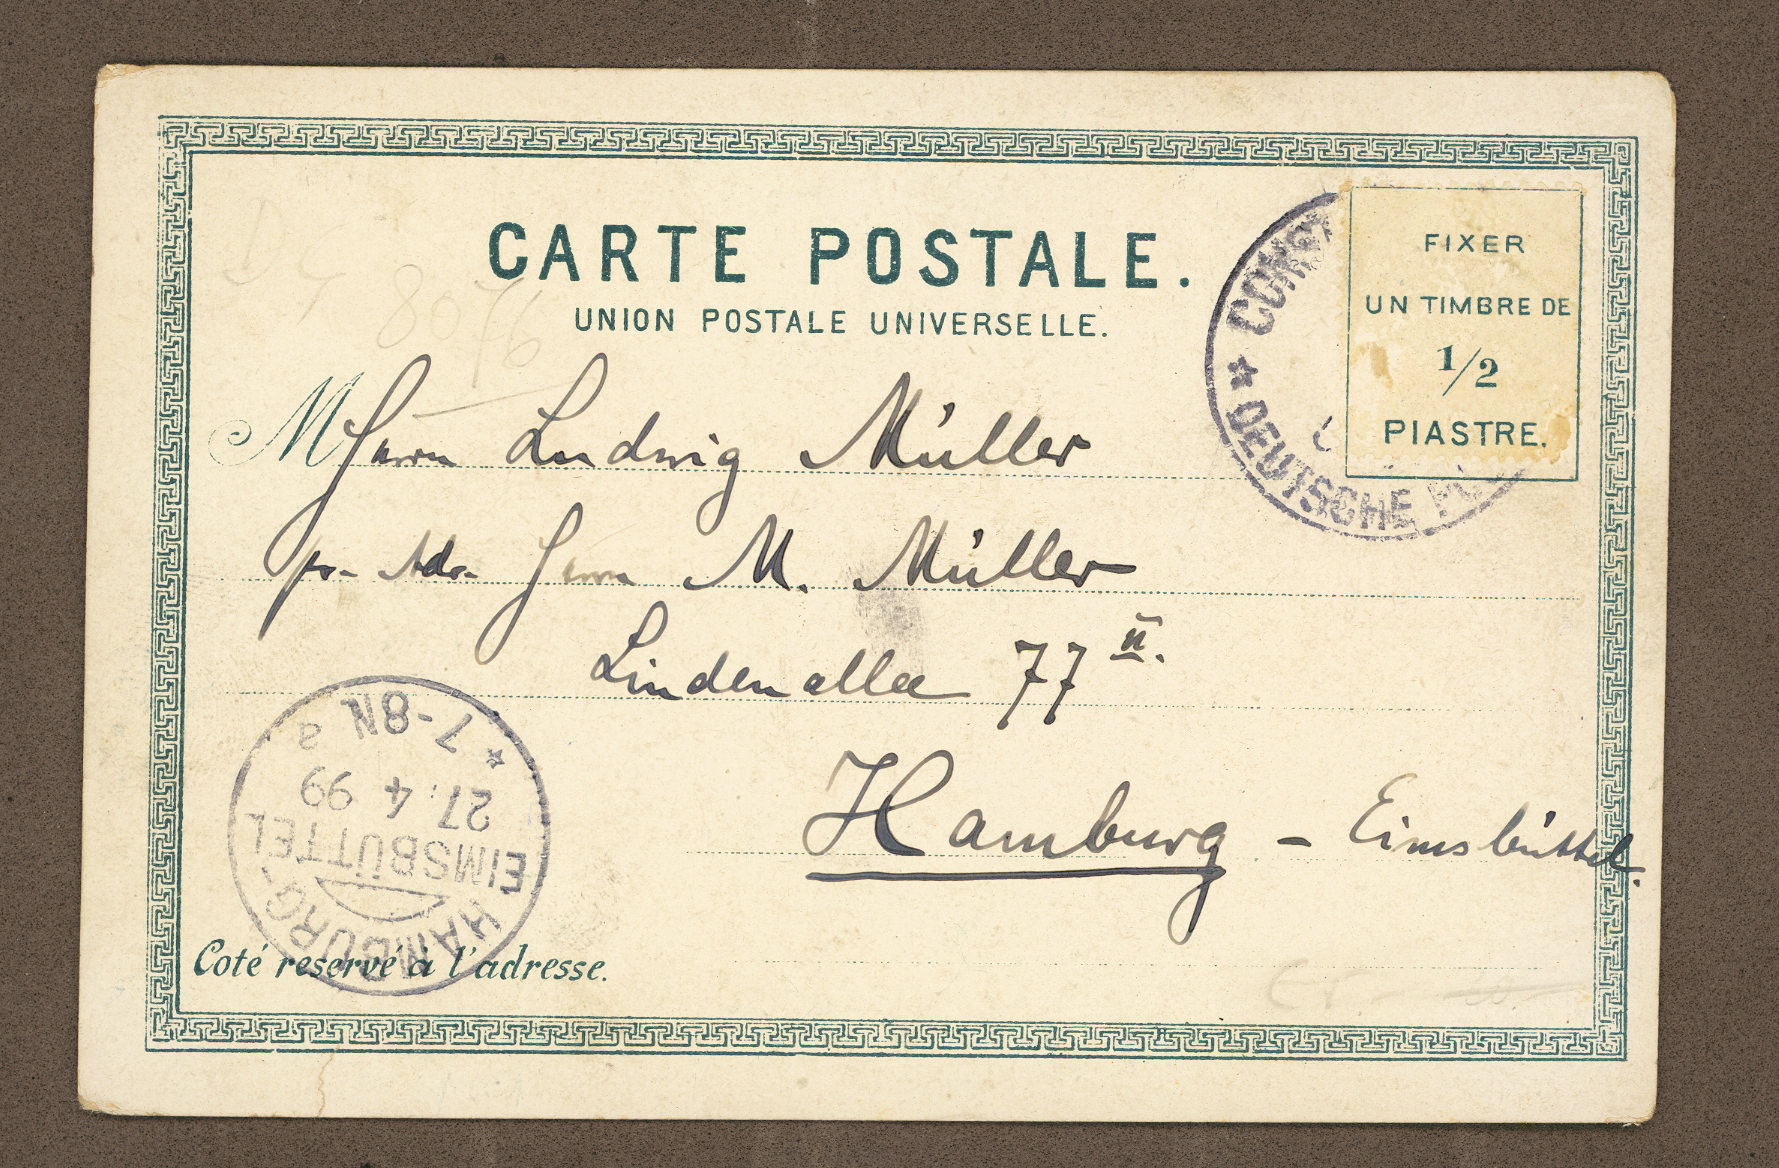 CARTE POSTALE.
UNION POSTALE UNIVERSELLE.
FIXER
UN TIMBRE DE
1/2
PIASTRE.
DEUTSCHE
8076
M Herrn Ludwig Müller
pr. Adr. Herrn M. Müller
Lindenallee 77 II.
Hamburg - Eimsbüttel.
* 7-8N a
27.4 99
EIMSBÜTTEL
HAMBURG-
Coté reservé à l'adresse.